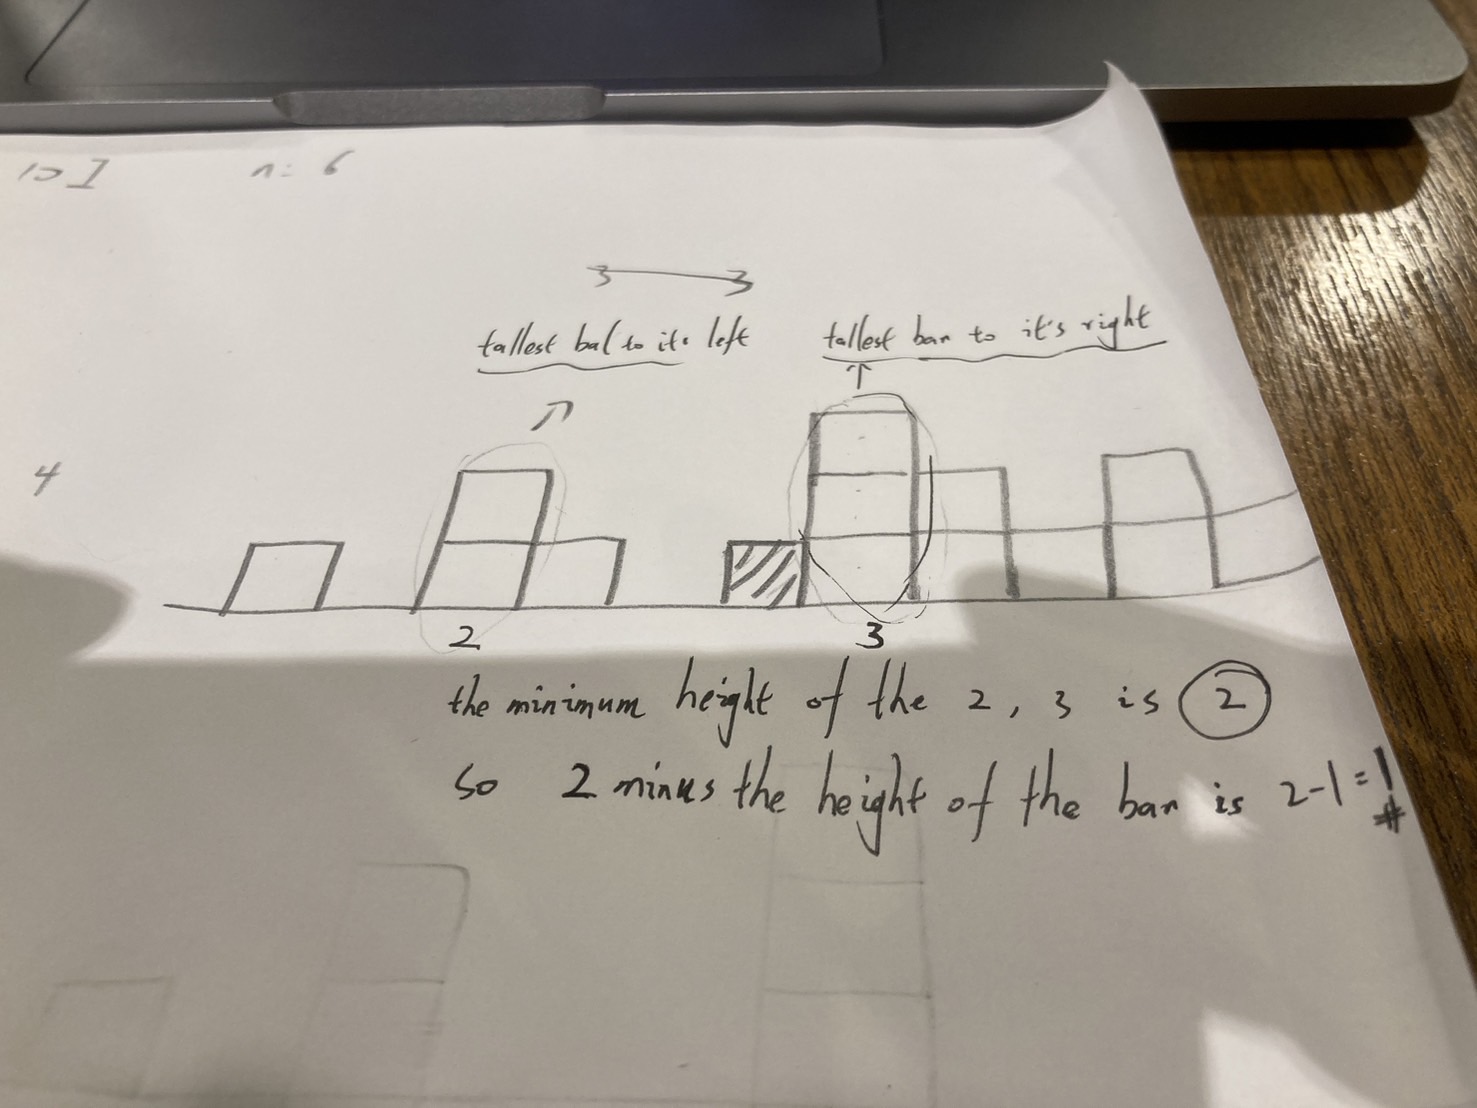 10]
n = 6
3 3
tallest bar to it's left
tallest bar to it's right
4
2
3
the minimum height of the 2, 3 is 2
so 2 minus the height of the bar is 2-1=1
#